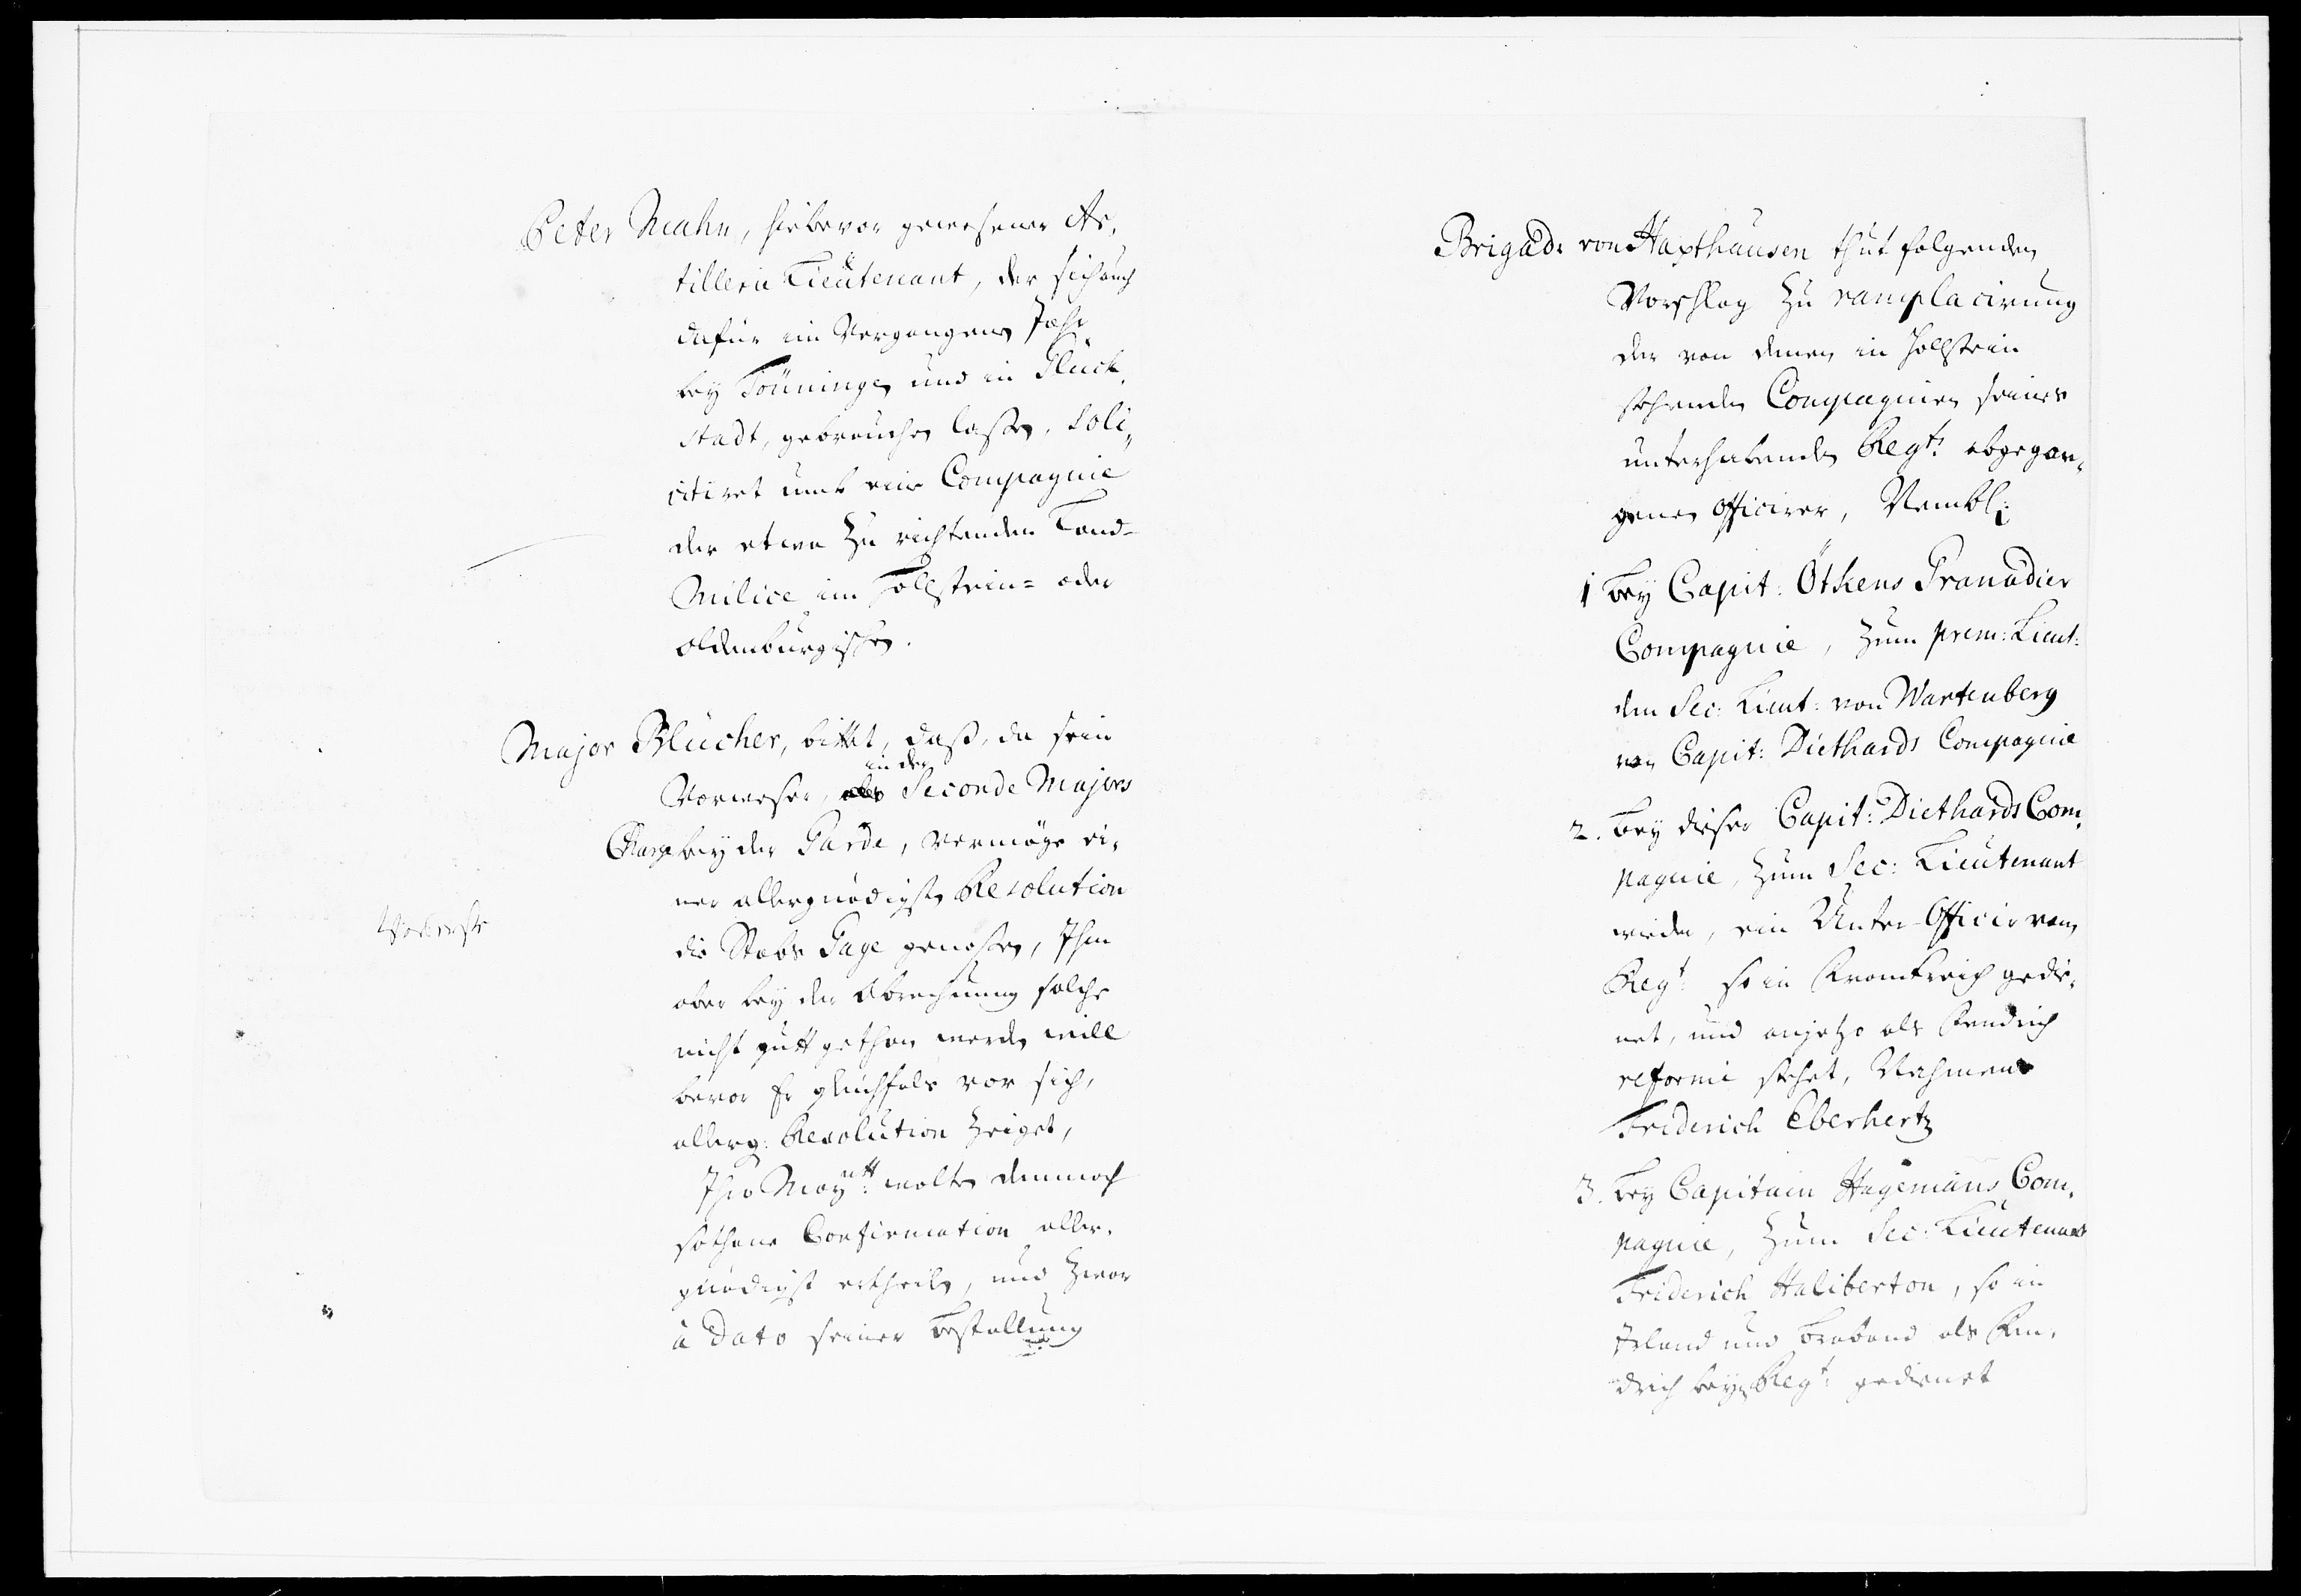 Peter Mahn, hiebevor gewesener Ar,
tillerie Lieutenant, der sich auch
dafür im Vergangen Jahr
bey Tönningen und in Glück,
stadt, gebrauchen lassen, Soli,,
citiret umb eine Compagnie
der etwa zu richtenden Land-
Milice im Hollstein= oder
Oldenburgischen.
Major Blücher, bittet, daß, da sein
in der
Vorweser, als Seconde Majors
Charge bey der Garde, vermöge ei,
ner allergnädigsten Resolution
die Stabs Gage genossen, Ihm
aber bey der Abrechnung solche
nicht gutt gethan werden will
bevor Er gleichfals vor sich,
allerg: Resolution zeiget,
Ihro Maytt: wolten demnach
sothane Confirmation aller,
gnädigst ertheilen, und zwar
à Dato seiner Bestallung
Brigad: von Haxthausen thut folgenden
Vorschlag zu ramplacirung
der von denen in Hollstein
stehenden Compagnien seines
unterhabenden Regts: abgegan,,
genen Officirer, Nembl:
1 Bey Capit: Öthkens Granadier
Compagnie, zum prem: Lieut:
den Sec: Lieut: von Wartenberg
von Capit: Diethards Compagnie
2. Bey dieser Capit: Diethards Com,
pagnie, zum Sec: Lieutenant
wieder, ein Unter-Officir vom
Regt: so in Franckreich gedie,
net, und anjetzo als Fendrich
reformé stehet, Nahmens
Friderich Eberhertz
3. Bey Capitain Hagemans Com,
pagnie, zum Sec: Lieutenant
Friderich Haliberton, so in
Irland und Braband als Fen,
drich beym Regt: gedienet